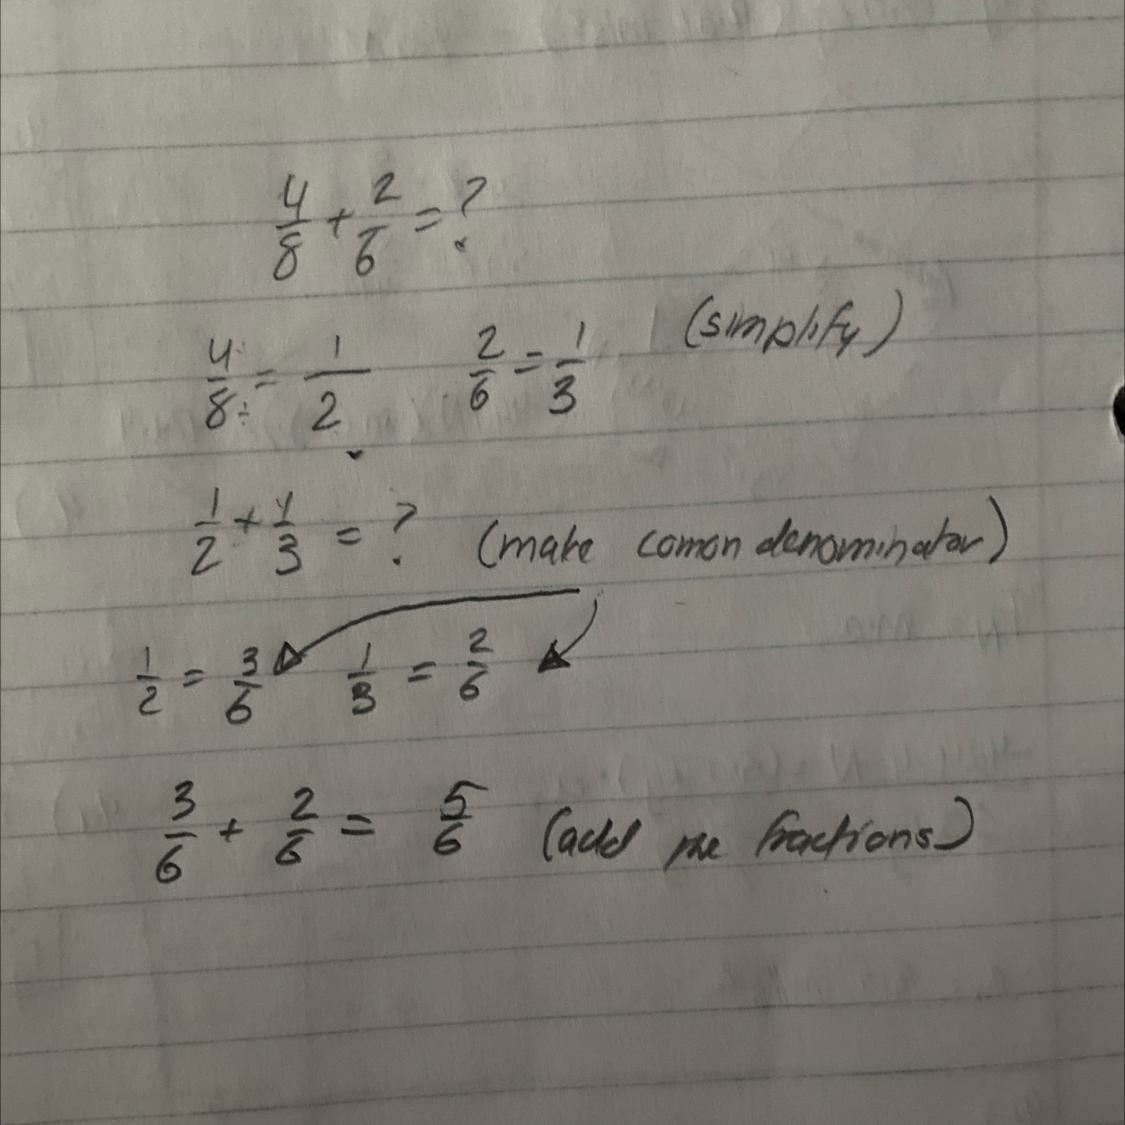 4/8 + 2/6 = ?
4/8 = 1/2 2/6 = 1/3 (simplify)
1/2 + 1/3 = ? (make comon denominator)
1/2 = 3/6 1/3 = 2/6
3/6 + 2/6 = 5/6 (add the fractions)